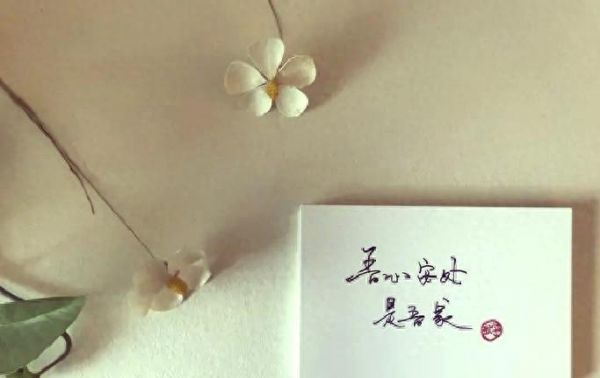 吾心安处
是吾家